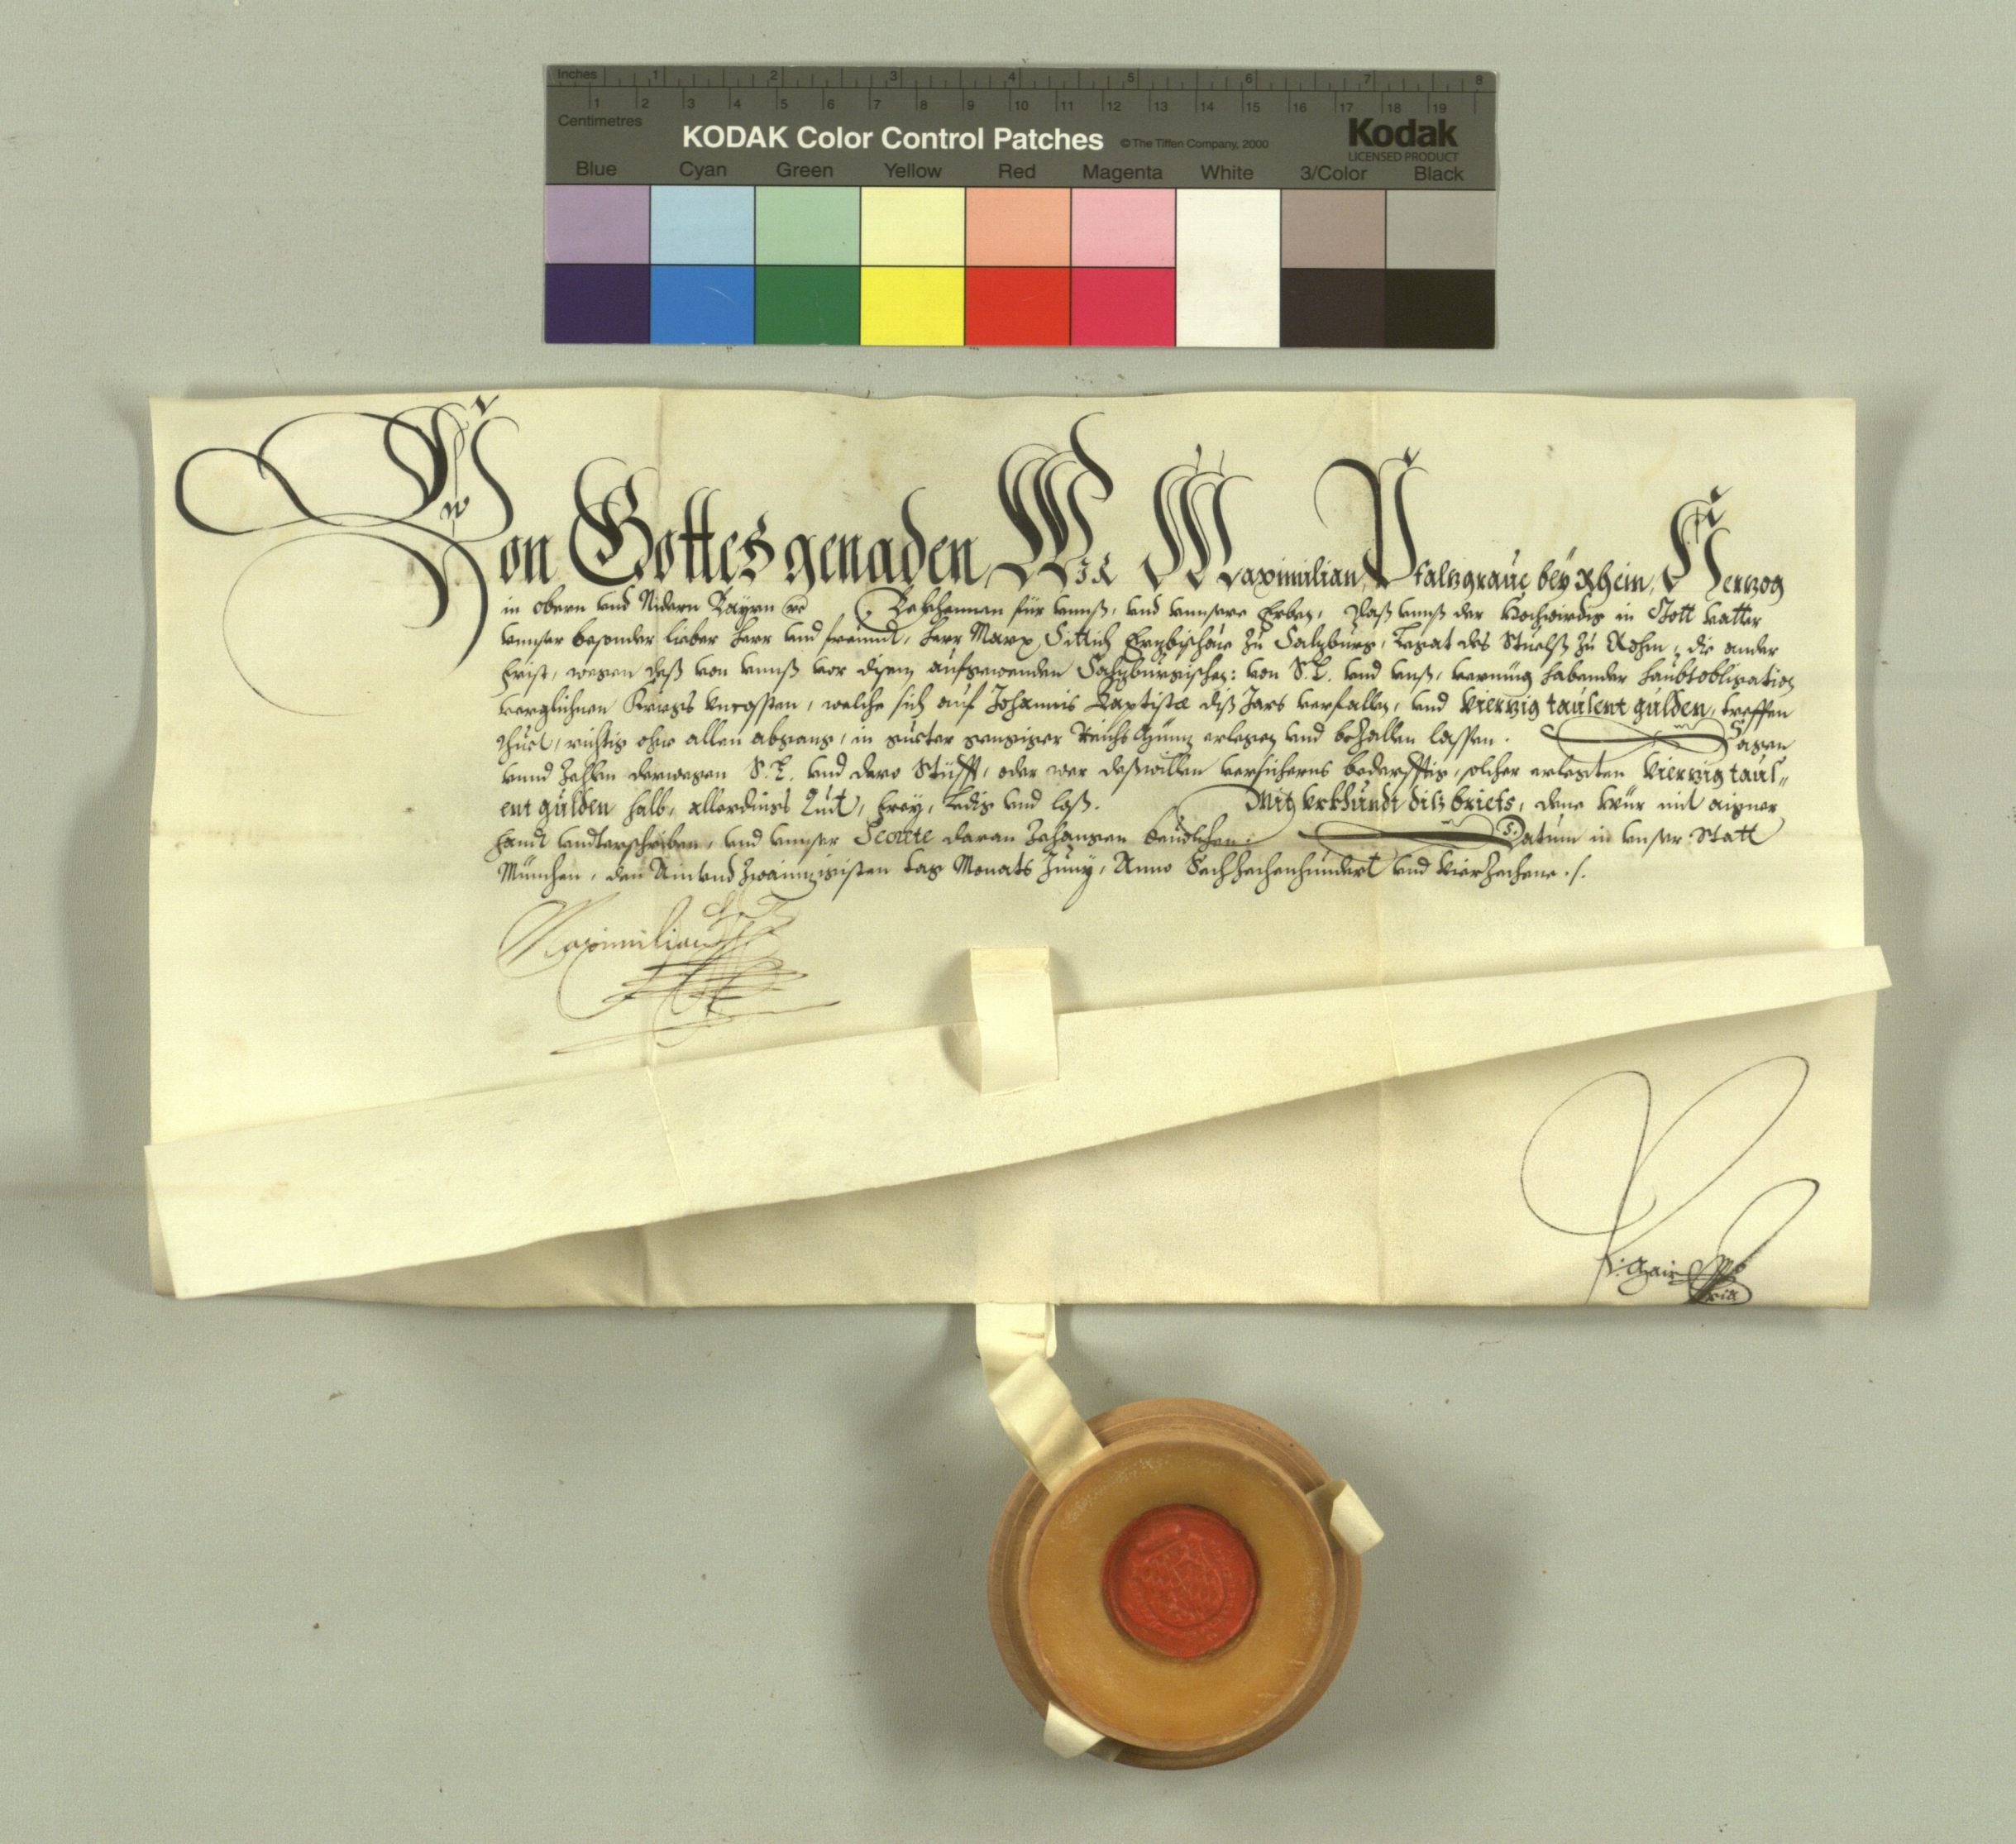 Inches 1 2 3 4 5 6 7 8
1 2 3 4 5 6 7 8 9 10 11 12 13 14 15 16 17 18 19
Centimetres
KODAK Color Control Patches ©The Tiffen Company, 2000 Kodak
LICENSED PRODUCT
Blue Cyan Green Yellow Red Magenta White 3/Color Black
Von Gottes genaden, Wir Maximilian Pfalzgraue bey Rhein, Herzog
in obern vnd Nidern Bayrn etc. Bekhennen für vnnß, vnd vnnsere Erben, Daß vnnß der Hochwirdig in Gott vatter
vnnser besonder lieber Herr vnd freündt, Herr Marx Sittich Erzbischoue zu Salzburg, Legat des Stuelß zu Rohm, die ander
Frist, wegen deß von vnnß vor disem aufgewenden Salzburgischen: von S. L. vnd vnß, vermüg habender Haubtobligation
verglichnen Kriegs vncossten, welche sich auf Johannis Baptistæ diß Jars verfallen, vnd vierzig tausent gulden, treffen
thuet, richtig ohne allen abgang, in gueter gengiger Reichs Münz erlegen vnd bezallen lassen. Sagen
vnnd Zehlen derwegen S. L. vnd dero Stüfft, oder wer deßwillen versicherns bedürfftig, solcher erlegten vierzig taus=
ent gulden halb, allerdings Quit, Frey, Ledig vnd loß. Mit vrkhundt diß briefs, dene wür mit aigner
Handt vndterschriben, vnd vnnser Secrete daran zehangen beuolchen. Datum in vnser Statt
München, den Ain vnd zwainzigisten tag Monats Juny, Anno Sechzechenhundert vnd vierzechene ./.
Maximilian